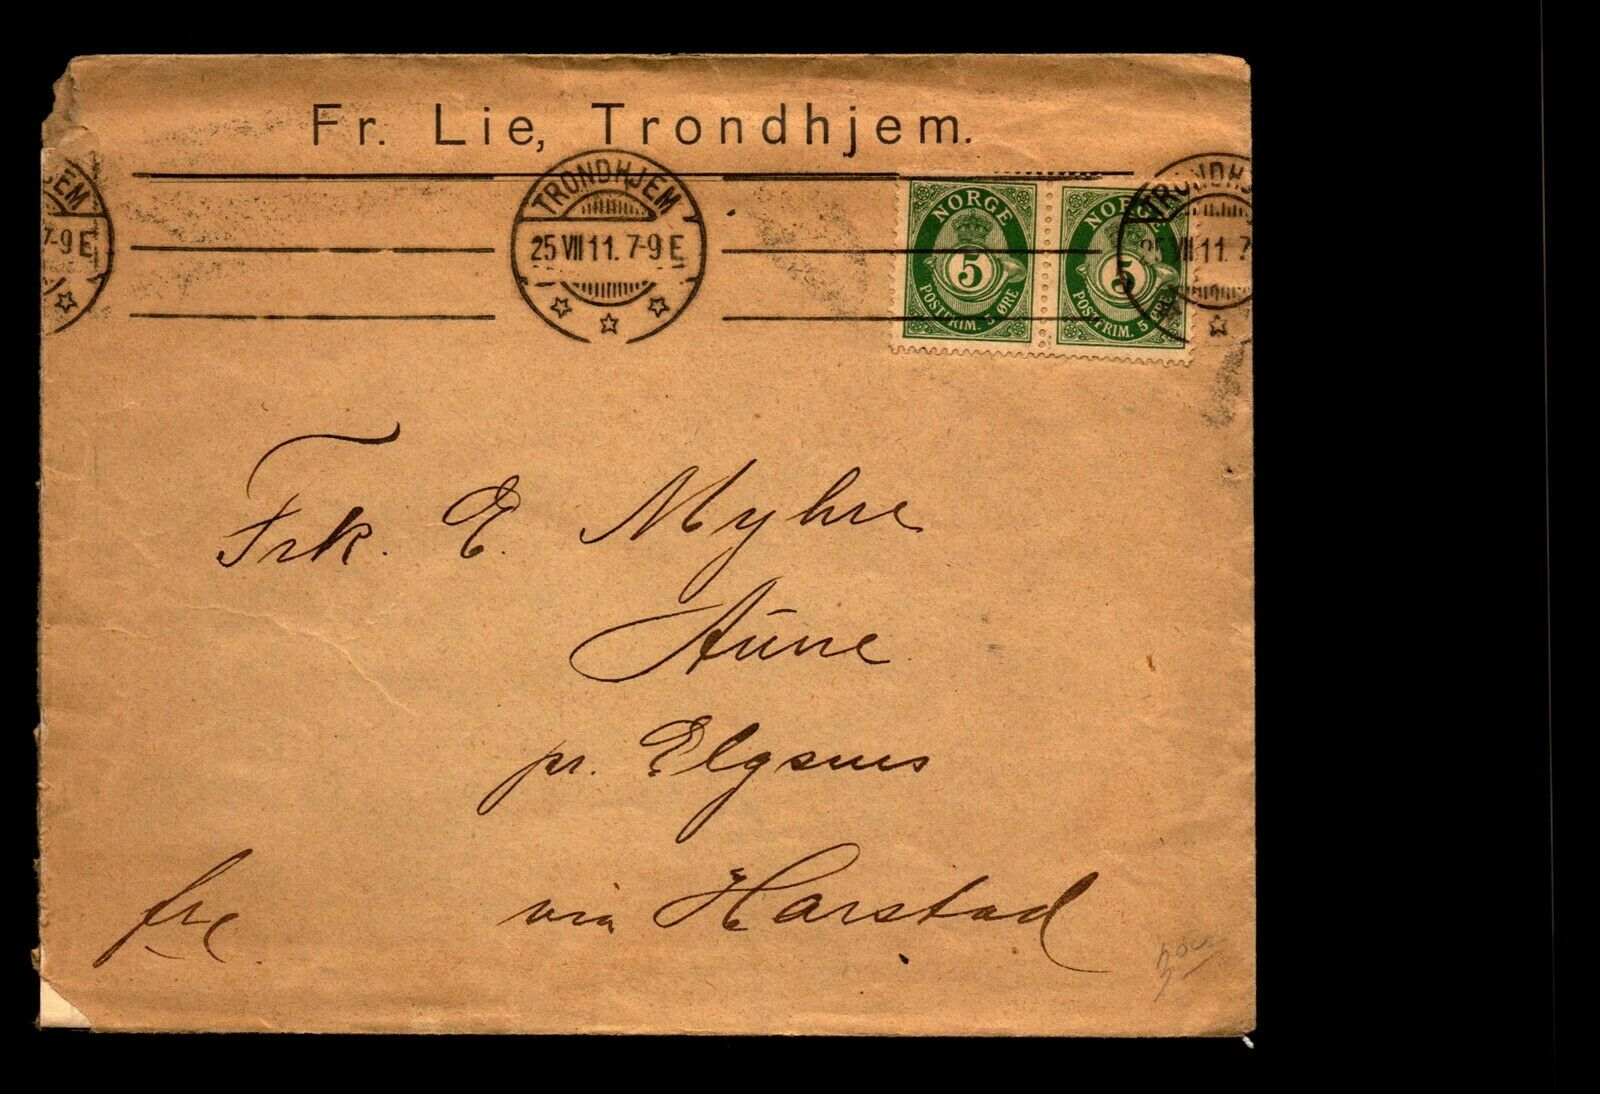 Fr. Lie, Trondhjem.
TRONDHJEM
25 VII 11. 7-9 E
JEM
7-9 E
TRONDHJ
25 VII 11. 7
NORGE
5
POSTFRIM. 5 ØRE
NORGE
5
POSTFRIM. 5 ØRE
Frk. E. Myhre
Aune
pr. Elgsnes
via Harstad